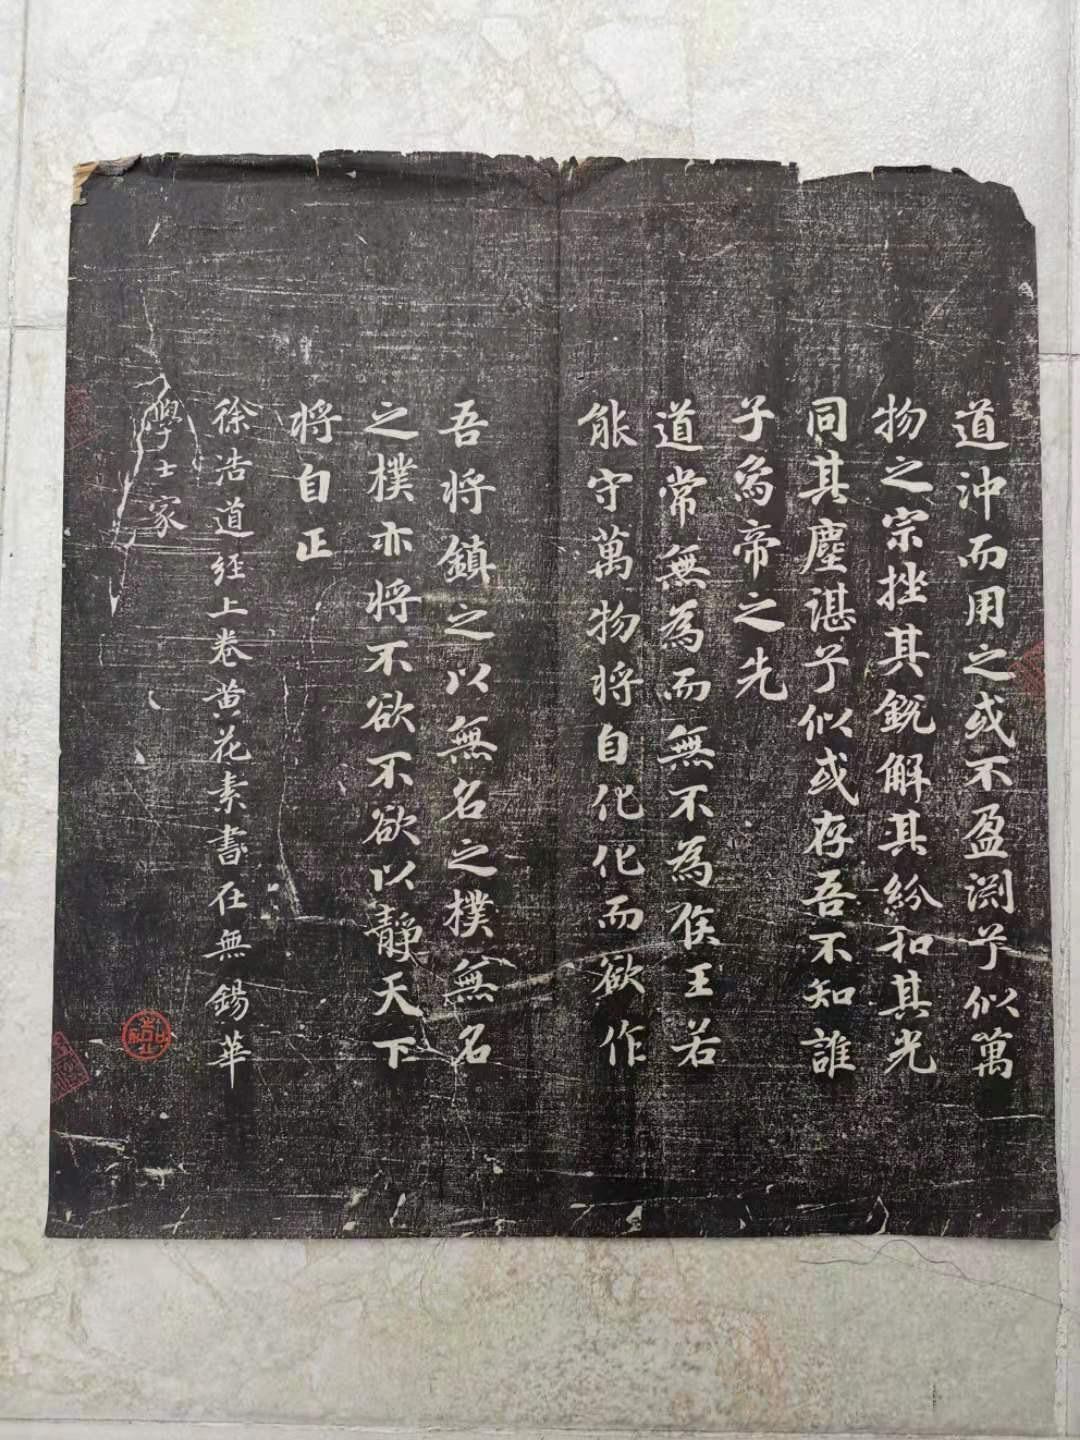 道沖而用之或不盈渊兮似萬
物之宗挫其銳解其紛和其光
同其塵湛兮似或存吾不知誰
子為帝之先
道常無為而無不為侯王若
能守萬物将自化化而欲作
吾将鎮之以無名之樸無名
之樸亦将不欲不欲以靜天下
将自正
徐浩道經上卷黄花素書在無錫華
學士家